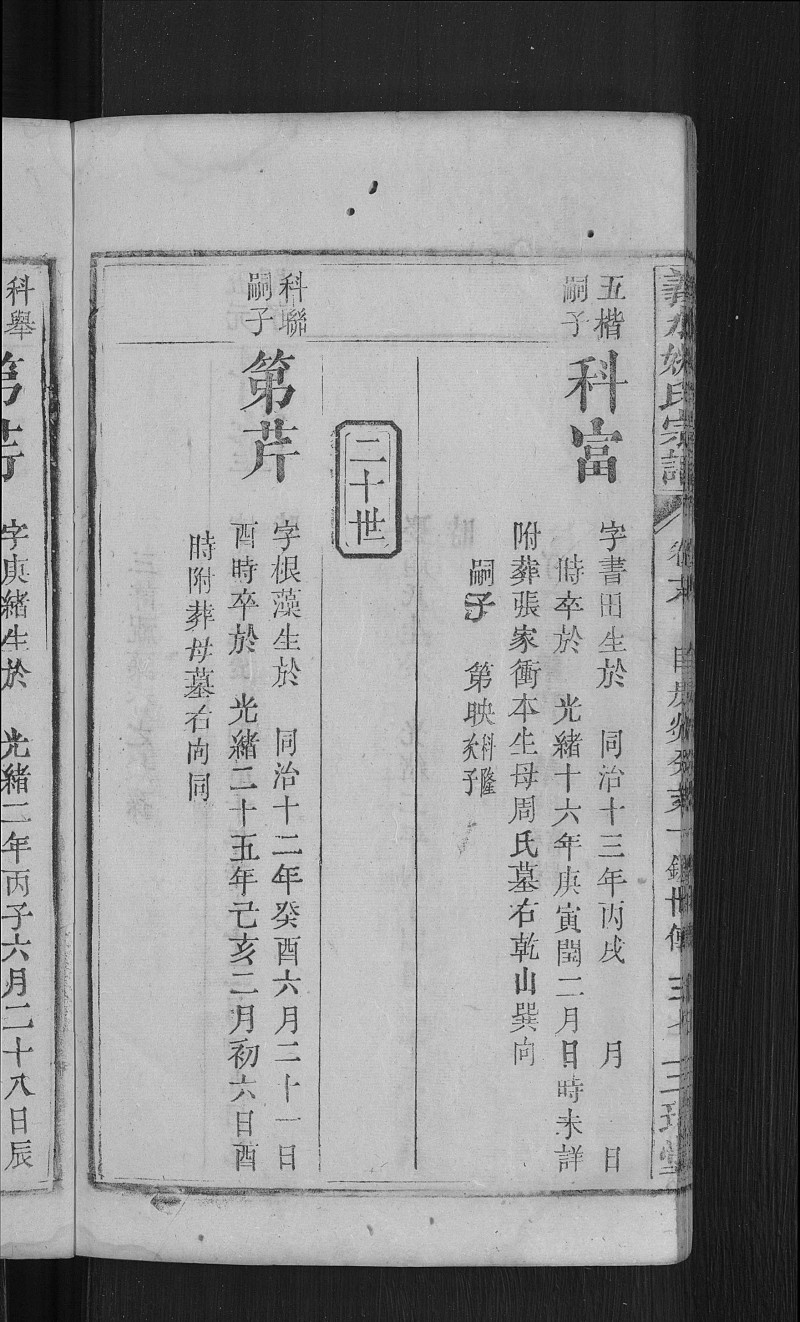 氏宗譜
五楷
嗣子
科富
字書田生於　同治十三年丙戌　月　日
時卒於　光緒十六年庚寅閏二月日時未詳
附葬張家衝本生母周氏墓右乾山巽向
嗣子　第映科隆次子
二十世
科聯
嗣子
第芹
字根藻生於　同治十二年癸酉六月二十一日
酉時卒於　光緒二十五年己亥二月初六日酉
時附葬母墓右向同
科舉
字庚緒生於　光緒二年丙子六月二十八日辰